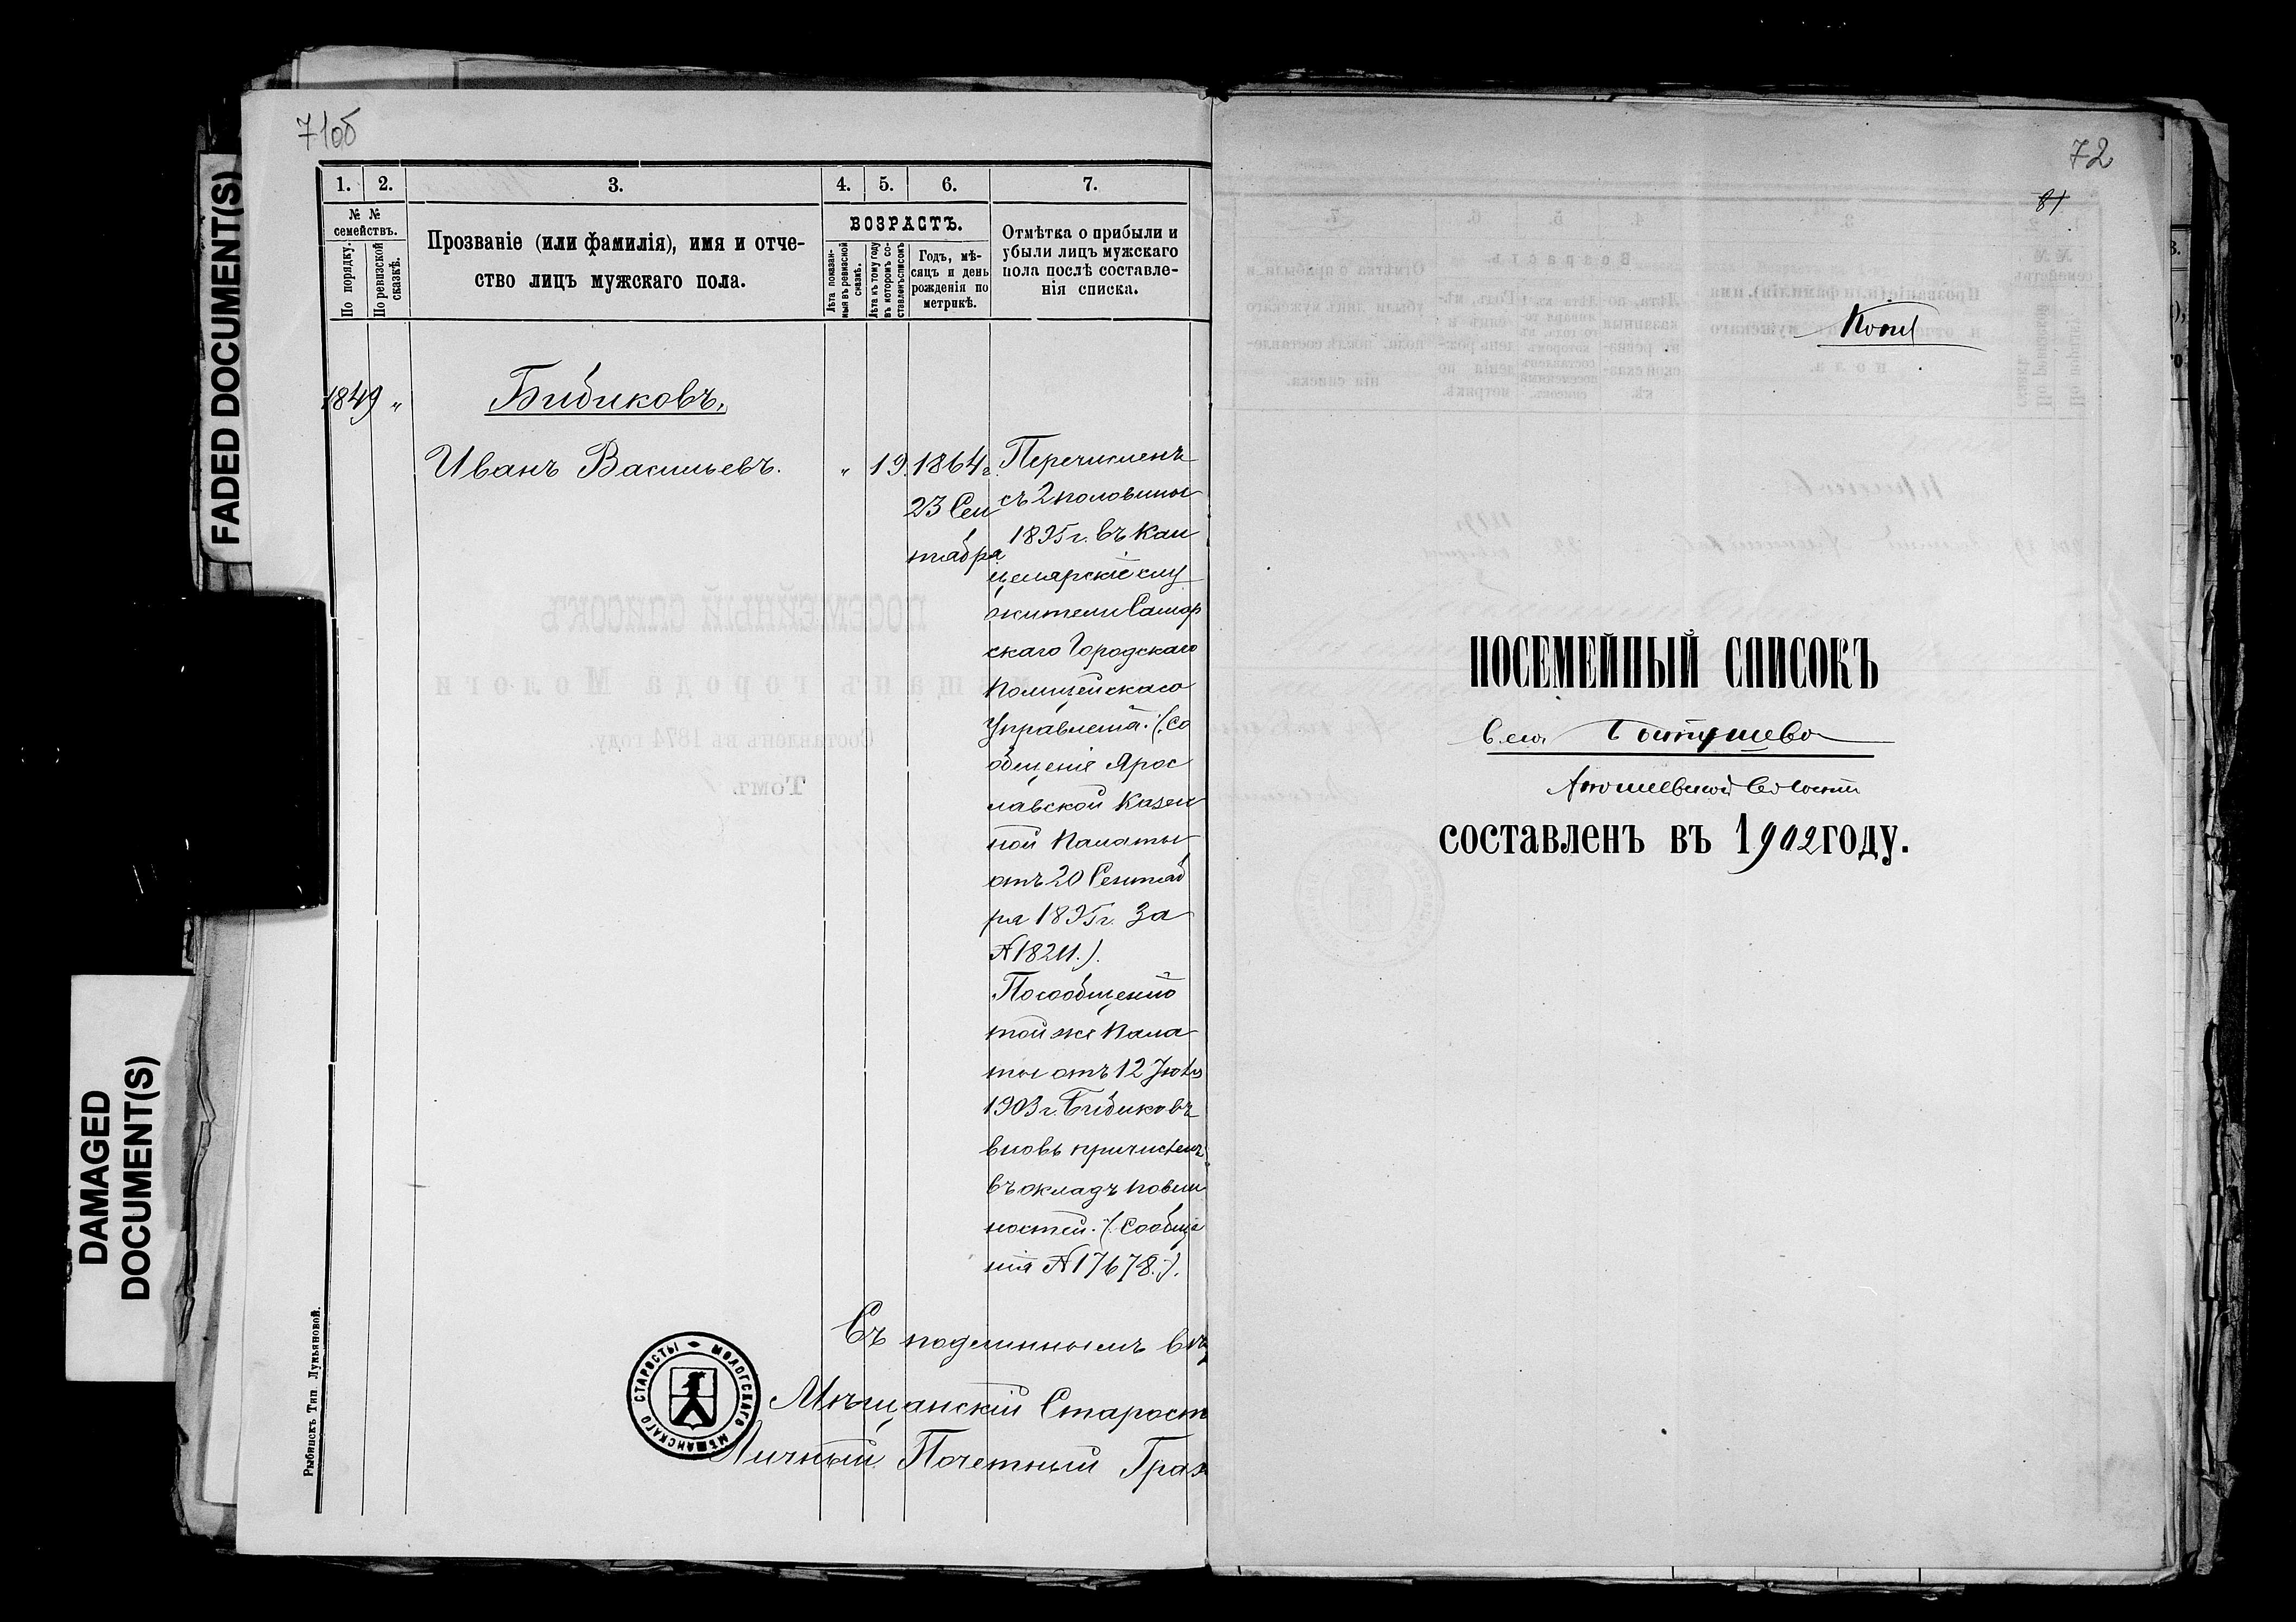 FADED DOCUMENT(S)
DAMAGED
DOCUMENT(S)
71об
1. 2. 3. 4. 5. 6. 7.
№ №
семействъ.
По порядку.
По ревизской
сказкѣ.
Прозваніе (или фамилія), имя и отче-
ство лицъ мужскаго пола.
ВОЗРАСТЪ.
Лѣта показан-
ныя въ ревизской
сказкѣ.
Лѣта къ тому году
въ которомъ со-
ставленъ списокъ
Годъ, мѣ-
сяцъ и день
рожденія по
метрикѣ.
Отмѣтка о прибыли и
убыли лицъ мужскаго
пола послѣ составле-
нія списка.
1849 „ Бибиковъ.
Иванъ Васильевъ. „ 19.
1864 г.
23 Сен
тября
Перечисленъ
съ 2 половины
1895 г. въ Кан
целярскіе слу
жители Самар
скаго Городскаго
Полицейскаго
Управленія. (Со
общеніе Ярос
лавской Казен
ной Палаты
отъ 20 Сентяб
ря 1895 г. за
№ 18211.).
По сообщенію
той же Пала
ты отъ 12 Іюля
1903 г. Бибиковъ
вновь причисленъ
въ окладъ повин
ностей. (Сообще
нія № 17678.).
Съ подлиннымъ вѣр
Мѣщанскій Старост
Личный Почетный Граж
МОЛОГСКАГО МѢЩАНСКАГО СТАРОСТЫ
Рыбинскъ Тип. Лукьяновой.
72
81
ПОСЕМЕЙНЫЙ СПИСОКЪ
СОСТАВЛЕНЪ ВЪ 1902 ГОДУ.